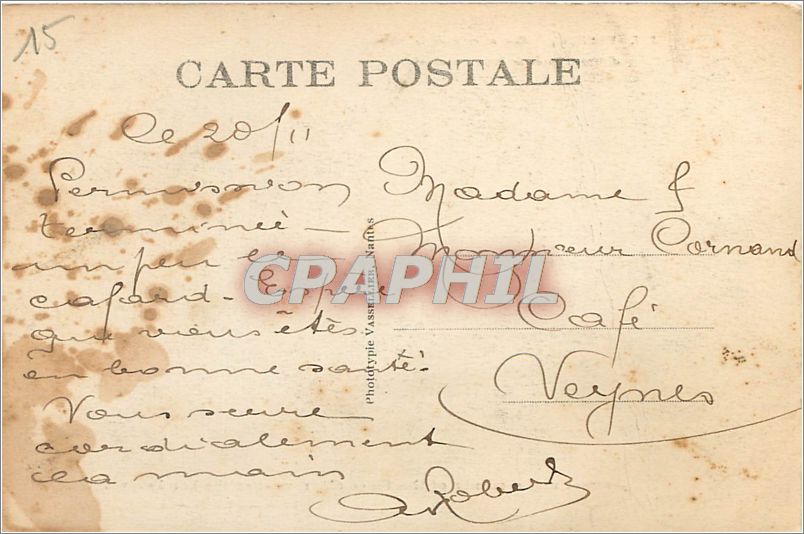 15
CARTE POSTALE
le 20/11
Permission
terminée -
un peu le
cafard - Espère
que vous êtes
en bonne santé.
Vous serre
cordialement
la main
Robert
Madame &
Monsieur Cornand
Café
Veynes
Phototypie VASSELLIER, Nantes
CPAPHIL